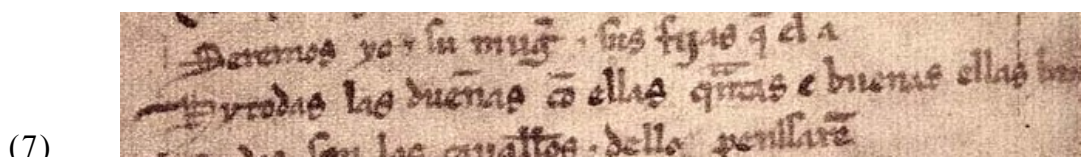 (7)
Seremos yo τ su mug̃ τ sus fijas q̃ el a
Y todas las dueñas cõ ellas qñtas e buenas ellas
son los cauall̃os dello penssarẽ